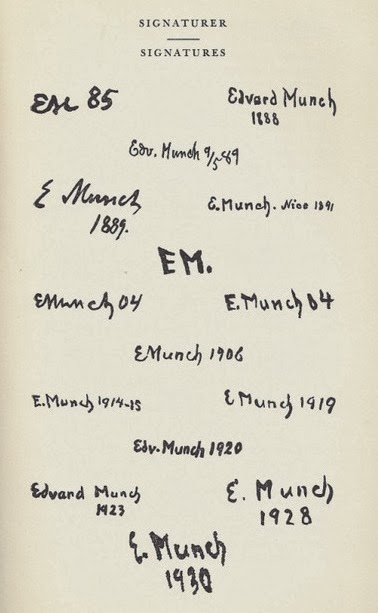 SIGNATURER
SIGNATURES
EM 85
Edvard Munch
1888
Edv. Munch 9/5-89
E Munch
1889.
E. Munch. Nice 1891
EM.
EMunch 04
E. Munch 04
E Munch 1906
E. Munch 1914-15
E Munch 1919
Edv. Munch 1920
Edvard Munch
1923
E. Munch
1928
E. Munch
1930